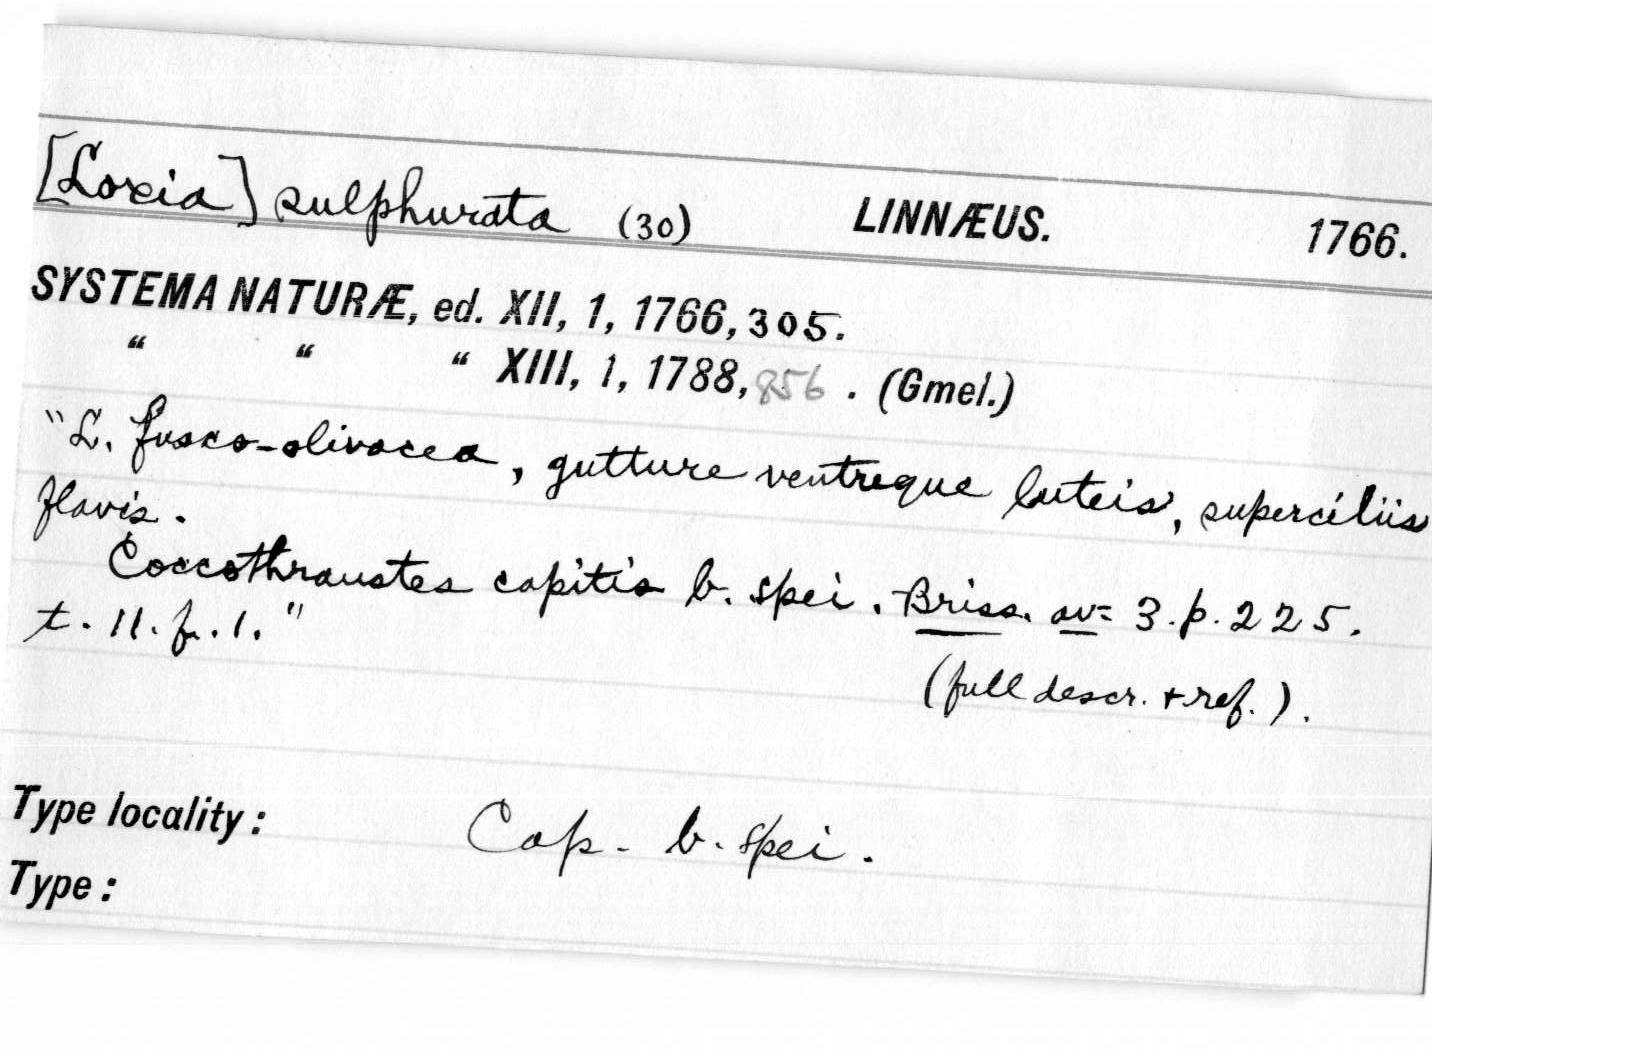 [Loxia] sulphurata (30) LINNÆUS. 1766.
SYSTEMA NATURÆ, ed. XII, 1, 1766, 305.
“ “ “ XIII, 1, 1788, 856. (Gmel.)
"L. fusco-olivacea, gutture ventreque luteis, superciliis
flavis.
Coccothraustes capitis b. spei. Briss. av= 3. p. 225.
t. 11. f. 1."
(full descr. + ref.).
Type locality: Cap. b. spei.
Type: